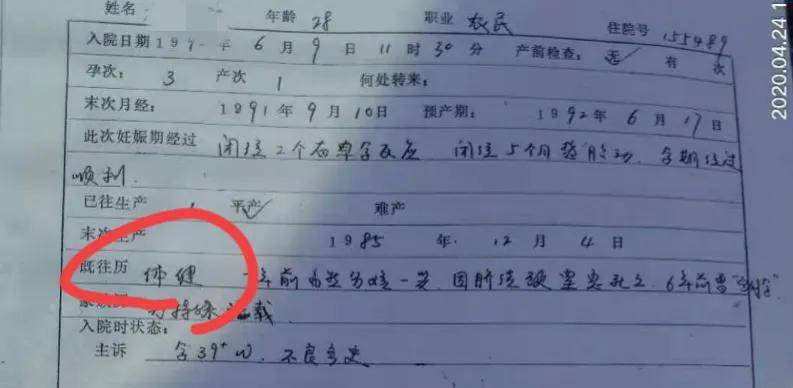 姓名 年龄 28 职业 农民 住院号 155489
入院日期 199 年 6 月 9 日 11 时 30 分 产前检查: 无 有 次
孕次: 3 产次 1 何处转来:
末次月经: 1991 年 9 月 10 日 预产期: 1992 年 6 月 17 日
此次妊娠期经过 闭经2个月 早孕反应 闭经5个月 胎动 孕期经过
顺利
已往生产 平产 难产
末次生产 1985 年 12 月 4 日
既往历 体健 年前 分娩一 因脐绕颈 6年前曾
特殊 记载
入院时状态:
主诉 孕39⁺W
2020.04.24 1